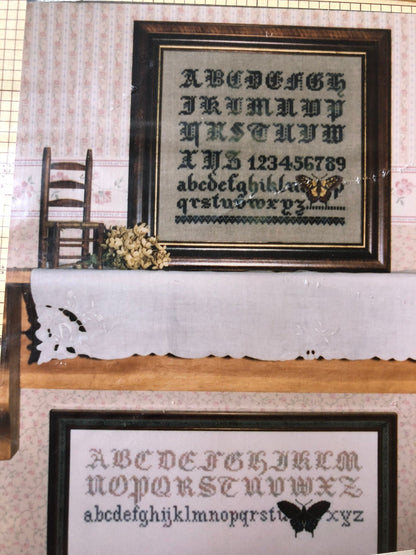 ABCDEFGH
IJKLMNOP
QRSTUVW
XYZ 123456789
abcdefghijklm
qrstuvwxyz
ABCDEFGHIJKLM
NOPQRSTUVWXYZ
abcdefghijklmnopqrstu xyz